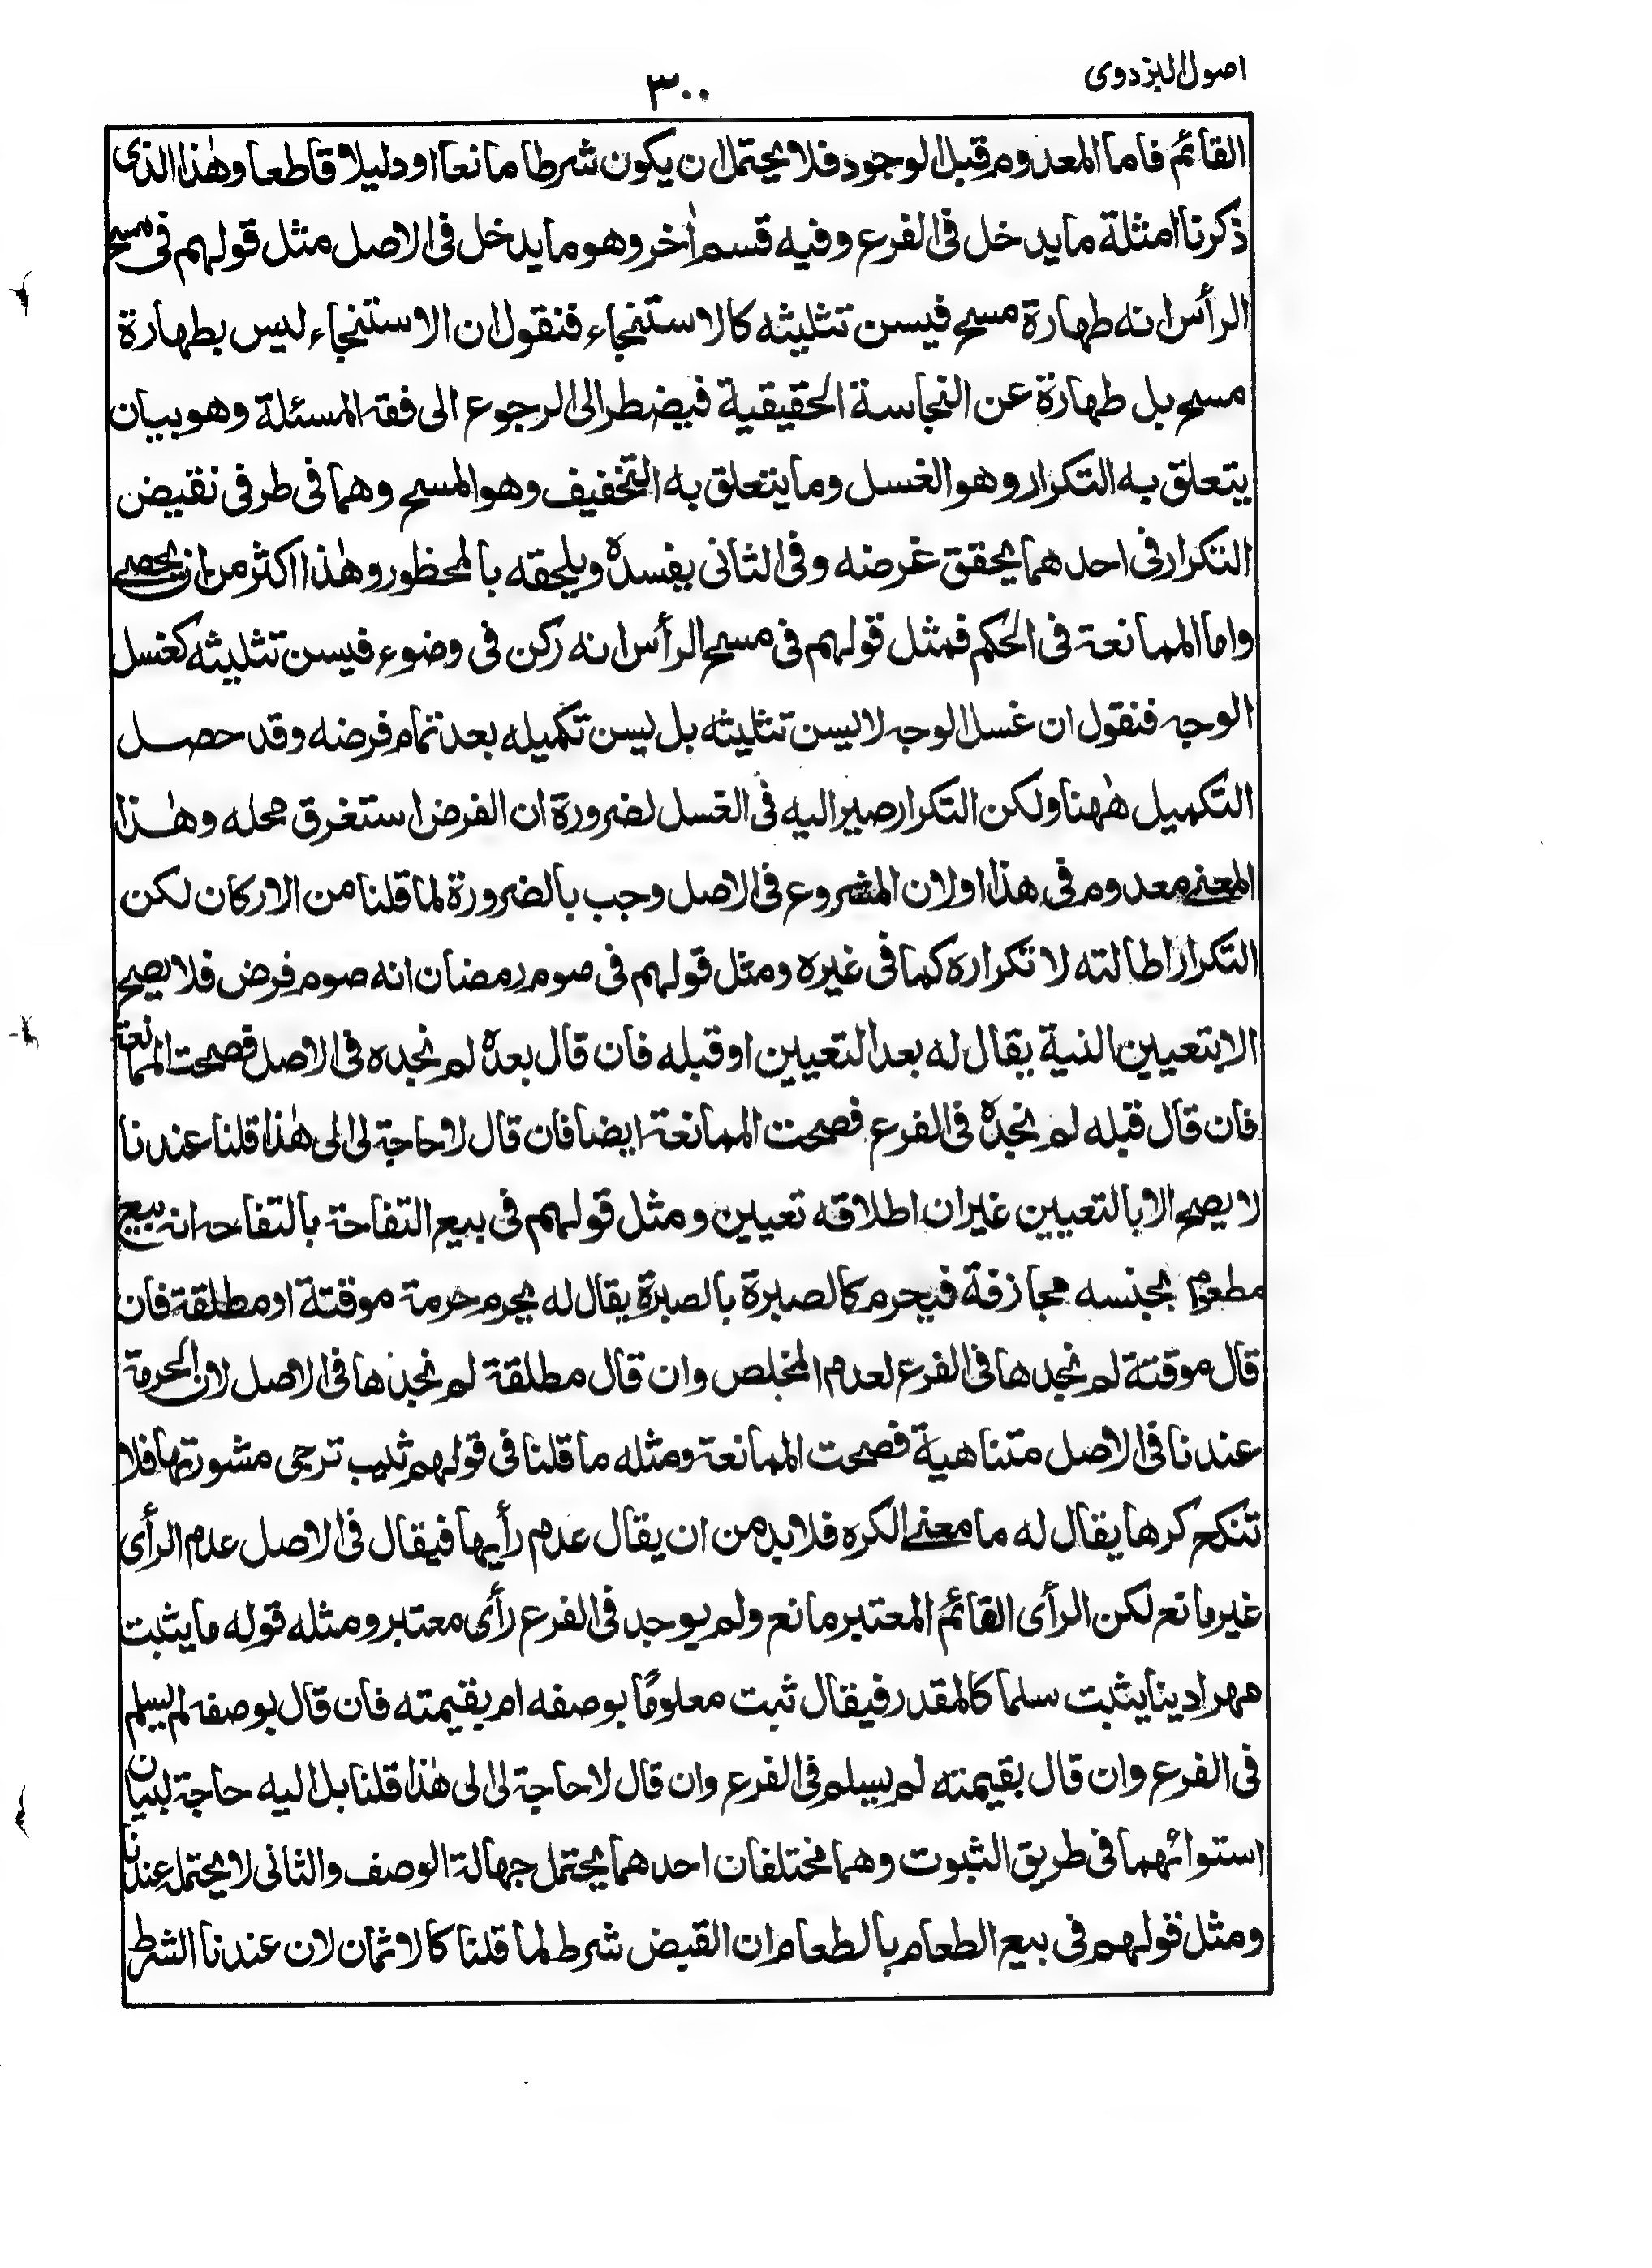 اصول البزدوی
۳۰۰
القائم فاما المعدوم قبل الوجود فلا يحتمل ان يكون شرطا مانعا او دليلا قاطعا وهٰذا الذى
ذكرنا امثلة ما يدخل فى الفرع وفيه قسم اٰخر وهو ما يدخل فى الاصل مثل قولهم فى مسح
الرأس انه طهارة مسح فيسن تثليثه كالاستنجاء فنقول ان الاستنجاء ليس بطهارة
مسح بل طهارة عن النجاسة الحقيقية فيضطر الى الرجوع الى فقه المسئلة وهو بيان
يتعلق به التكرار وهو الغسل وما يتعلق به التخفيف وهو المسح وهما فى طرفى نقيض
التكرار فى احدهما يحقق غرضه وفى الثانى يفسده ويلحقه بالمحظور وهٰذا اكثر من ان يحصى
واما الممانعة فى الحكم فمثل قولهم فى مسح الرأس انه ركن فى وضوء فيسن تثليثه كغسل
الوجه فنقول ان غسل الوجه لا يسن تثليثه بل يسن تكميله بعد تمام فرضه وقد حصل
التكميل هٰهنا ولكن التكرار صير اليه فى الغسل لضرورة ان الفرض استغرق محله وهٰذا
المعنى معدوم فى هذا اولان المشروع فى الاصل وجب بالضرورة لما قلنا من الاركان لكن
التكرار اطالته لا تكراره كما فى غيره ومثل قولهم فى صوم رمضان انه صوم فرض فلا يصح
الا بتعيين النية يقال له بعد التعيين او قبله فان قال بعده لم نجده فى الاصل فصحت الممانعة
فان قال قبله لم نجده فى الفرع فصحت الممانعة ايضا فان قال لا حاجة لى الى هٰذا قلنا عندنا
لا يصح الا بالتعيين غير ان اطلاقه تعيين ومثل قولهم فى بيع التفاحة بالتفاحه انه بيع
مطعوم بجنسه مجازفة فيحرم كالصبرة بالصبرة يقال له يحرم حرمة موقتة او مطلقة فان
قال موقتة لم نجدها فى الفرع لعدم المخلص وان قال مطلقة لم نجدها فى الاصل لان الحرمة
عندنا فى الاصل متناهية فصحت الممانعة ومثله ما قلنا فى قولهم ثيب ترجى مشورتها فلا
تنكح كرها يقال له ما معنى الكره فلا بد من ان يقال عدم رأيها فيقال فى الاصل عدم الرأى
غير مانع لكن الرأى القائم المعتبر مانع ولم يوجد فى الفرع رأى معتبر ومثله قوله ما يثبت
مهرا دينا يثبت سلما كالمقدر فيقال ثبت معلومًا بوصفه ام بقيمته فان قال بوصفه لم يسلم
فى الفرع وان قال بقيمته لم يسلم فى الفرع وان قال لا حاجة لى الى هٰذا قلنا بل اليه حاجة لبيان
استوائهما فى طريق الثبوت وهما مختلفان احدهما يحتمل جهالة الوصف والثانى لا يحتمل عندنا
ومثل قولهم فى بيع الطعام بالطعام ان القبض شرط لما قلنا كالاثمان لان عندنا الشرط